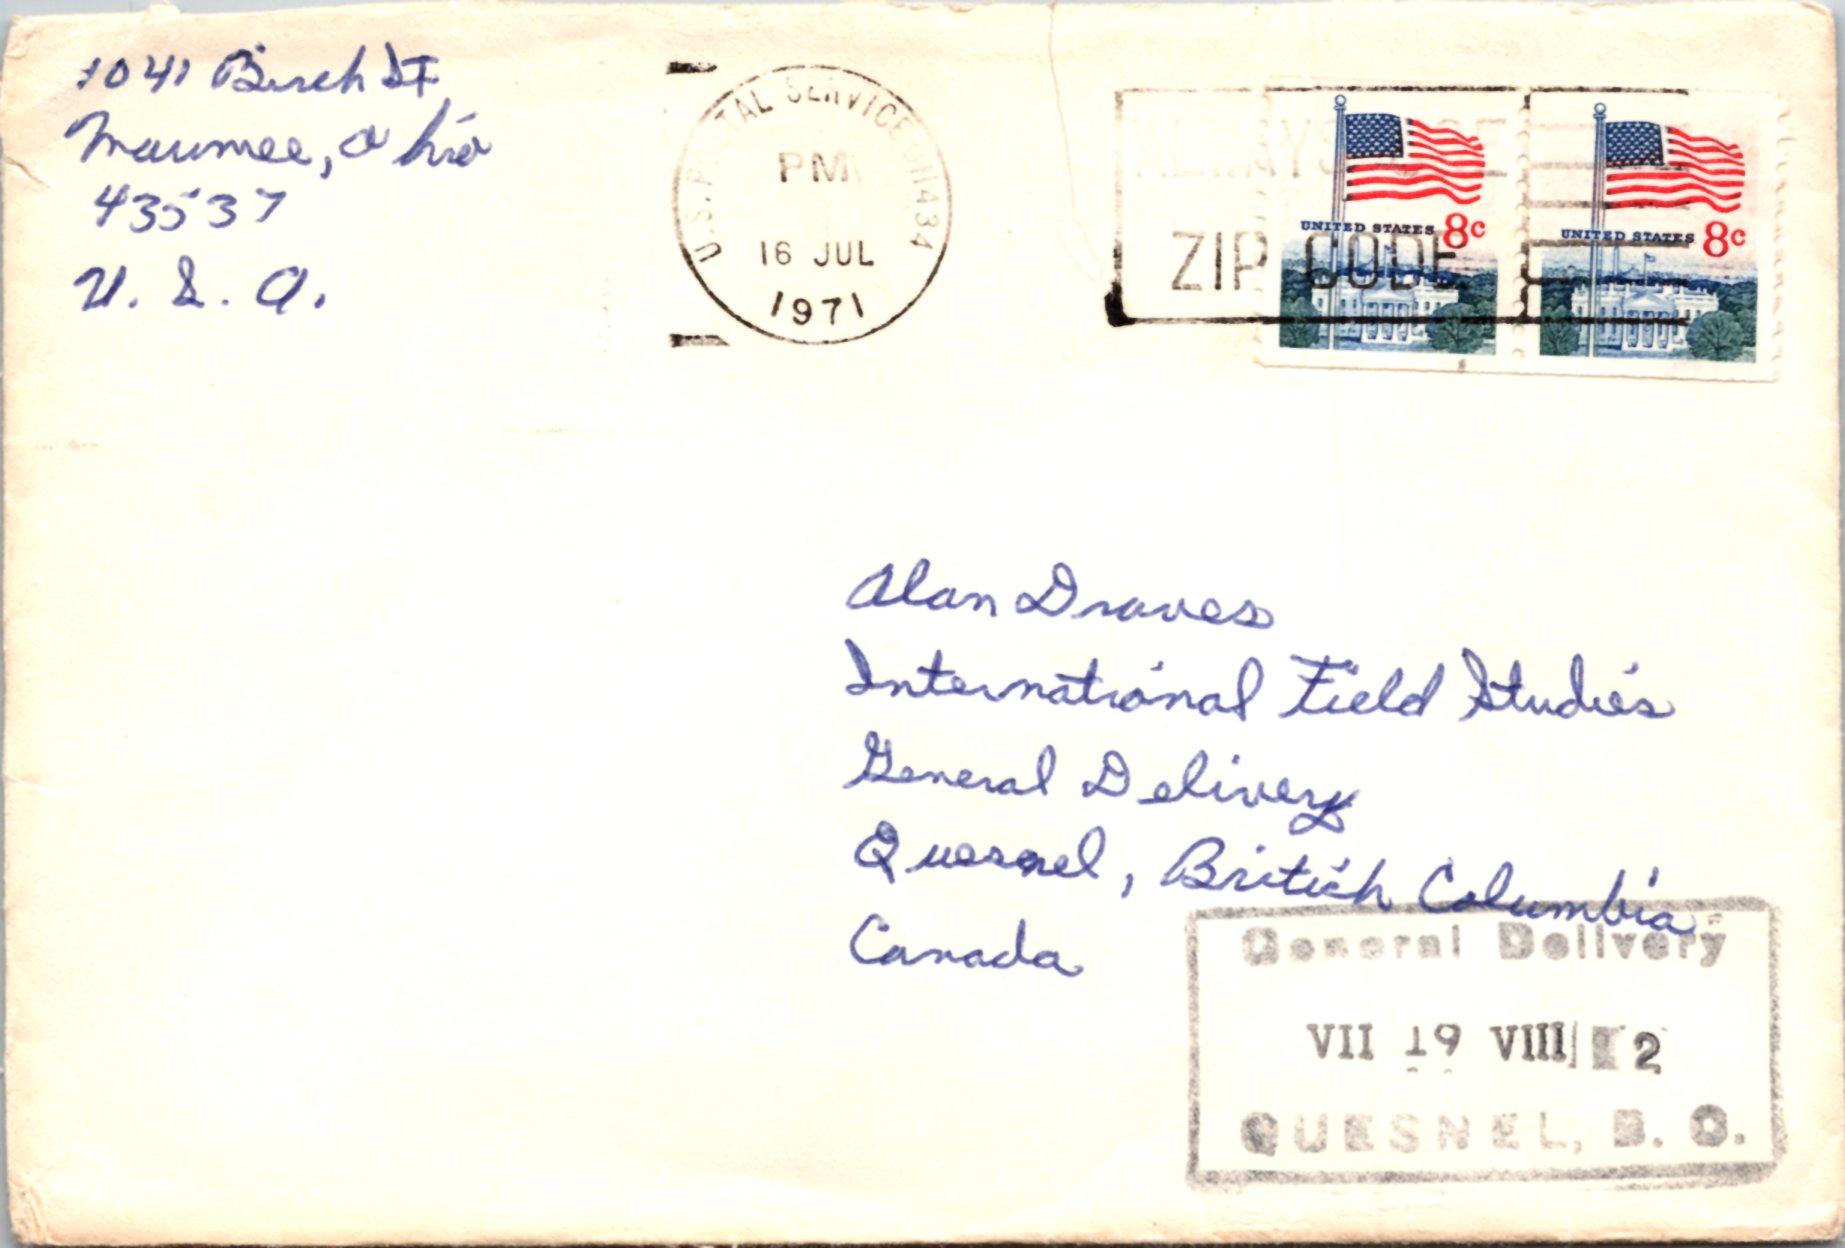 1041 Birch St
Maumee, Ohio
43537
U. S. A.
U.S. POSTAL SERVICE OH 434
PM
16 JUL
1971
ALWAYS USE
ZIP CODE
UNITED STATES 8c
UNITED STATES 8c
Alan Draves
International Field Studies
General Delivery
Quesnel, British Columbia
Canada
General Delivery
VII 19 VIII 2
QUESNEL, B. C.